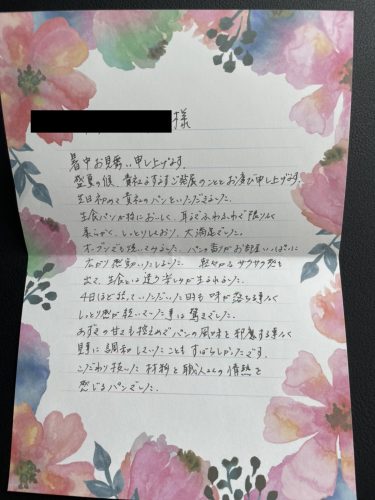 様
暑中お見舞い申し上げます。
盛夏の候、貴社ますますご発展のこととお慶び申し上げます。
先日初めて貴社のパンをいただきました。
生食パンが特においしく、耳までふわふわで限りなく
柔らかく、しっとりしており、大満足でした。
オーブンでも焼いてみました。パンの香りがお部屋いっぱいに
広がり感動いたしました。軽やかなサクサク感も
出て、生食とは違う楽しみが生まれました。
4日ほど経っていただいた時も味が落ちる事なく
しっとり感が続いていた事は驚きでした。
あずきの甘さも控えめでパンの風味を邪魔する事なく
見事に調和していたこともすばらしかったです。
こだわり抜いた材料と職人さんの情熱を
感じるパンでした。